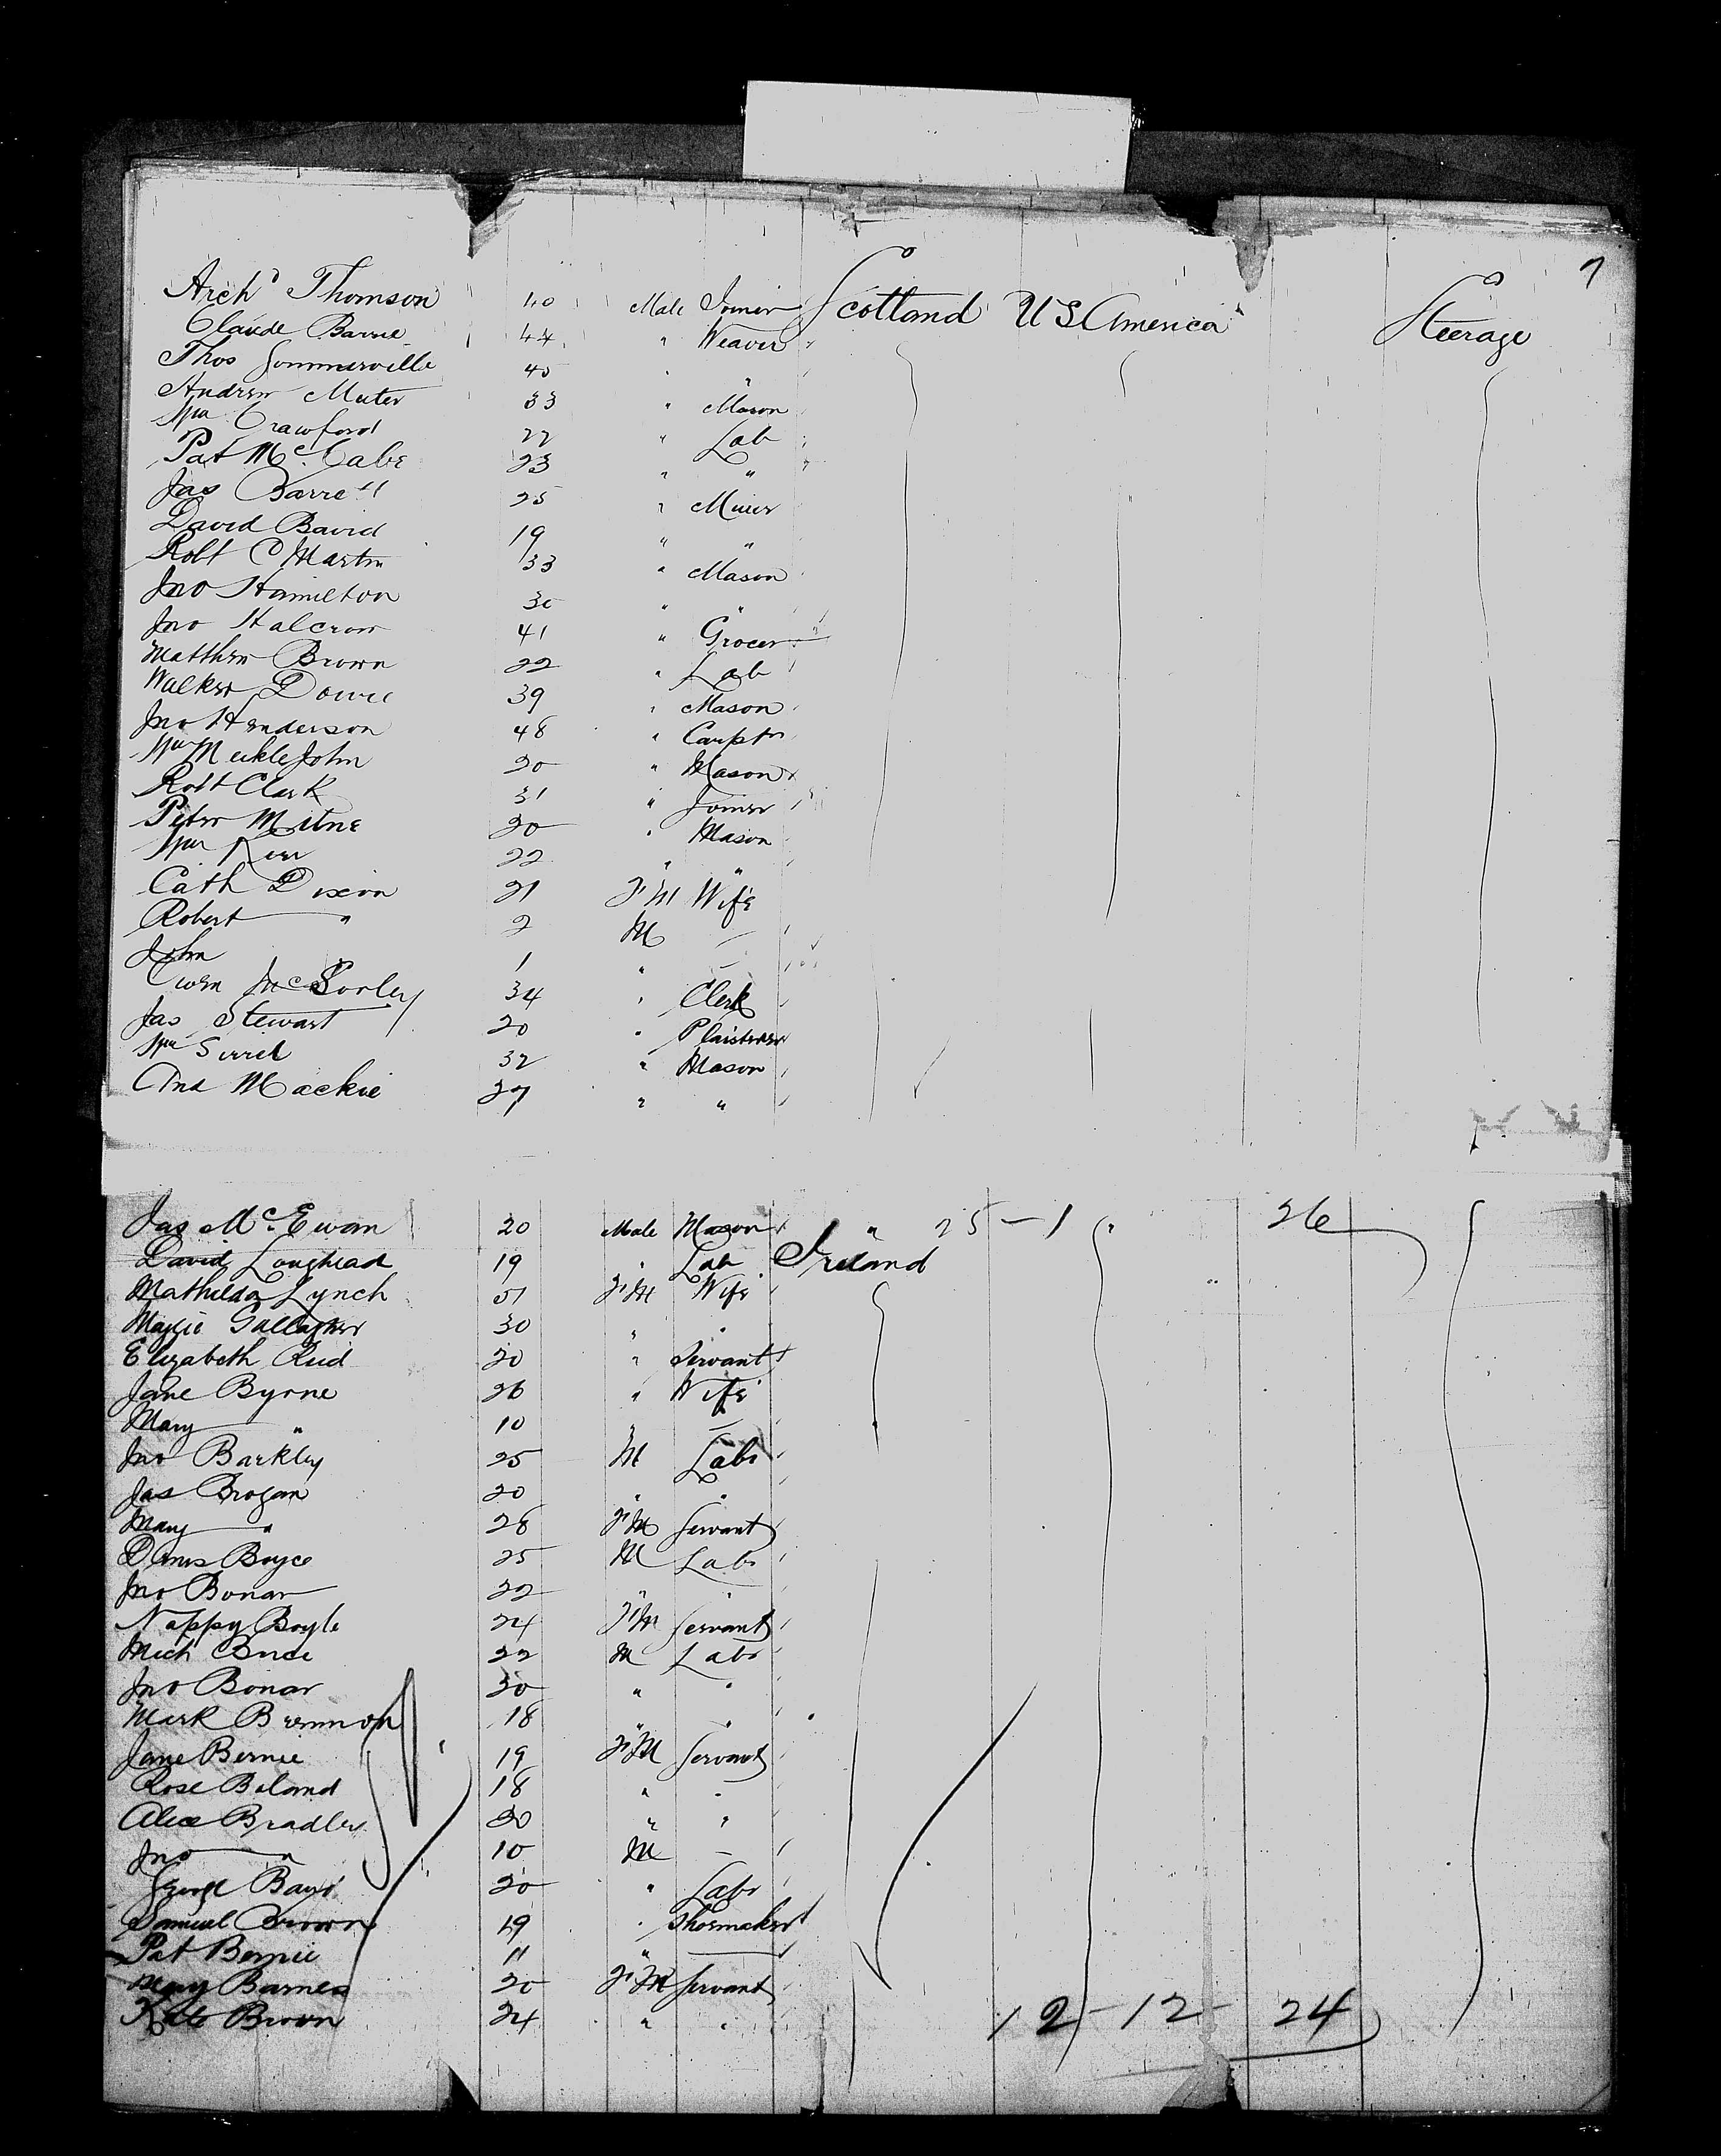 7
Archd Thomson 40 Male Joiner Scotland U S America Steerage
Claude Barrie 44 " Weaver "
Thos Sommerville 45 " "
Andrew Muter 33 " Mason
Wm Crawford 22 " Lab
Pat McCabe 23 " " "
Jas Barrett 25 " Miner
David Baird 19 " "
Robt C Martin 33 " Mason
Jno Hamilton 30 " "
Jno Halcrow 41 " Grocer
Matthew Brown 22 " Lab
Walker Dowie 39 " Mason
Jno Henderson 48 " Carptr
Wm MeikleJohn 20 " Mason
Robt Clark 31 " Joiner
Peter Milne 20 " Mason
Wm Kerr 22 " "
Cath Dixon 21 FM Wife
Robert " 2 M —
John 1 " —
Owen McSorley 34 " Clerk
Jas Stewart 20 " Plaisterer
Wm 32 " Mason
And Mackie 27 " "
Jas McEwan 20 Male Mason " 25 — 1 " 26
David Loughead 19 " Lab Ireland
Mathilda Lynch 51 FM Wife
Maggie Gallagher 30 " "
Elizabeth Reid 20 " Servant
Jane Byrne 26 " Wife
Mary " 10 " —
Jno Barkley 25 M Labr
Jas Brogan 20 " "
Mary " 28 FM Servant
Denis Boyce 25 M Labr
Jno Bonar 22 " "
Nappy Boyle 24 FM Servant
Mich 22 M Labr
Jno Bonar 30 " "
Mark Brennnon 18 "
Jane Bernie 19 FM Servant
Rose Boland 18 " "
Alice Bradley 30 " "
Jno " 10 M —
George 20 " Labr
Samuel Brown 19 " Shoemaker
Pat Bernie 11 " —
Mary Barnes 20 FM Servant
Kate Brown 24 " " 12 - 12 - 24